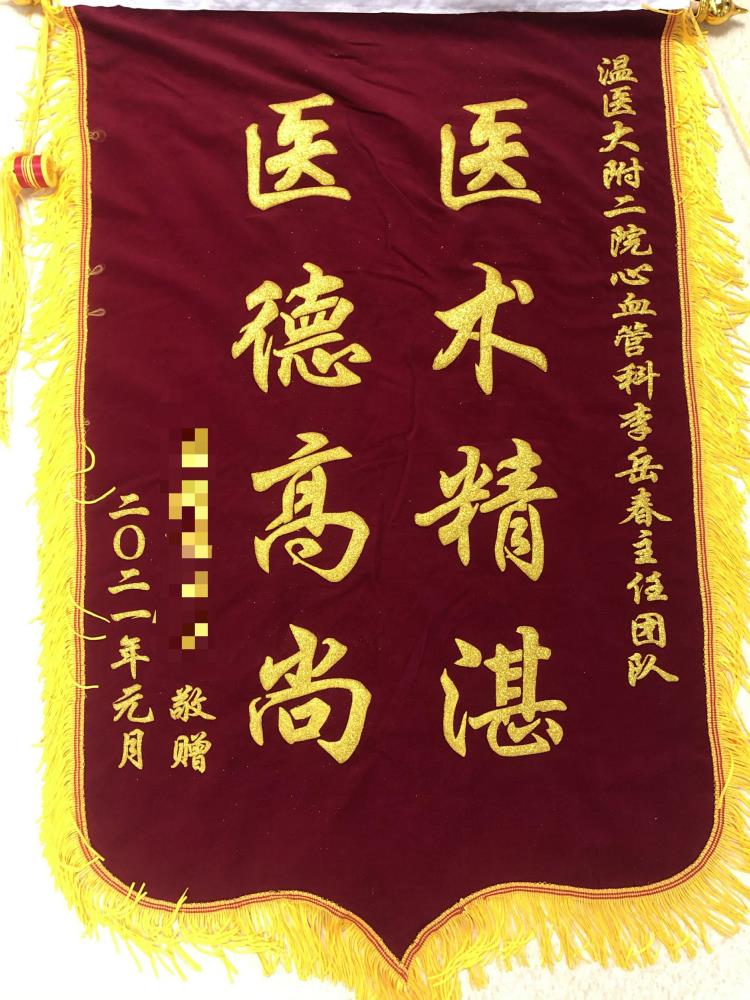 温医大附二院心血管科李岳春主任团队
医术精湛
医德高尚
敬赠
二〇二一年元月